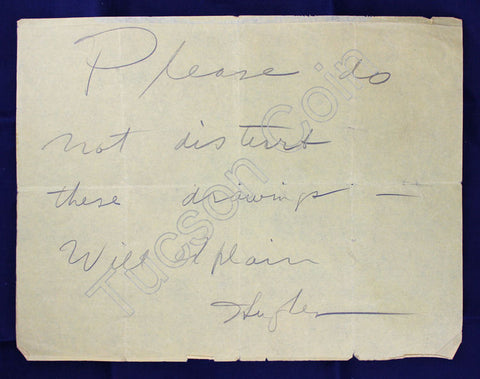 Please do
not disturb
these drawings —
Will explain
Hughes
Tucson Coin